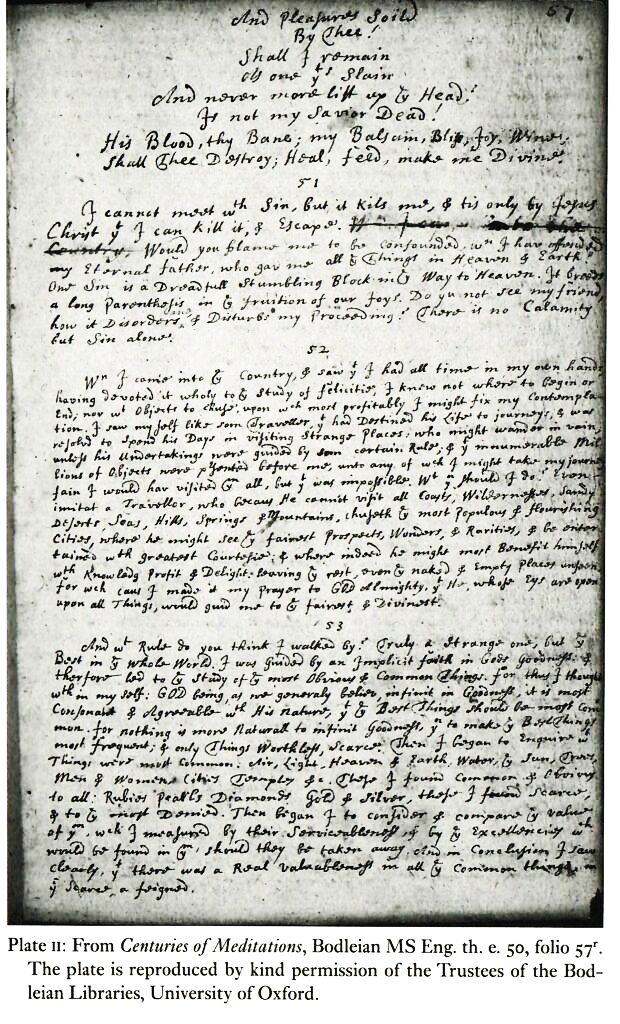 57
And Pleasures Soild
By Thee!
Shall I remain
As one yt's Slain
And never more lift up ye Head!
Is not my Savior Dead!
His Blood, thy Bane; my Balsam, Bliss, Joy, Wine;
Shall Thee Destroy; Heal, feed, make me Divine.
51
I cannot meet wth Sin, but it kils me, & tis only by Jesus
Christ yt I can kill it, & Escape.
Would you blame me to be confounded, wn I have offended
my Eternal father, who gav me all ye Things in Heaven & Earth?
One Sin is a Dreadfull Stumbling Block in ye Way to Heaven. It breeds
a long Parenthesis in ye fruition of our Joys. Do yu not see my friend
how it Disorders & Disturbs my Proceeding? There is no Calamity
but Sin alone.
52
Wn I came into ye Country, & saw yt I had all time in my own hands
having devoted it wholy to ye Study of felicitie, I knew not where to begin or
End; nor wt Objects to chuse, upon wch most profitably I might fix my Contempla
tion. I saw my self like som Traveller, yt had Destined his Life to journeys, & was
resolvd to Spend his Days in visiting Strange Places: who might wander in vain,
unless his Undertakings were guided by som certain Rule; & yt innumerable Mil
lions of Objects were presented before me, unto any of wch I might take my journey
fain I would hav visited ym all, but yt was impossible. Wt yn should I do? Even
imitat a Traveller, who becaus He cannot visit all Coasts, Wildernesses, Sandy
Deserts, Seas, Hills, Springs & Mountains, chuseth ye most Populous & flourishing
Cities, where he might see ye fairest Prospects, Wonders, & Rarities, & be enter
tained wth greatest Courtesie: & where indeed he might most Benefit himself
wth Knowledg Profit & Delight: leaving ye rest, even ye naked & Empty Places unseen.
for wch caus I made it my Prayer to GOD Almighty, yt He, whose Eys are open
upon all Things, would guid me to ye fairest & Divinest.
53
And wt Rule do you think I walked by? Truly a Strange one, but ye
Best in ye Whole World. I was Guided by an Implicit faith in Gods Goodness: &
therfore led to ye Study of ye most Obvious & Common Things. for thus I thought
wth in my self: GOD being, as we generaly believ, infinit in Goodness, it is most
Consonant & Agreeable wth His Nature, yt ye Best Things should be most Com
mon. for nothing is more Naturall to infinit Goodness, yn to make ye Best Things
most frequent; & only Things Worthless, Scarce. Then I began to Enquire wt
Things were most Common: Air, Light, Heaven & Earth, Water, ye Sun, Trees,
Men & Women, Cities Temples &c. These I found Common & Obvious
to all: Rubies Pearls Diamonds Gold & Silver, these I found scarce,
& to ye most Denied. Then began I to consider & compare ye value
of ym, wch I measured by their Serviceableness, & by ye Excellencies wch
would be found in ym, should they be taken away. And in Conclusion I saw
clearly, yt there was a Real valuableness in all ye Common things; in
ye Scarce, a feigned.
Plate II: From Centuries of Meditations, Bodleian MS Eng. th. e. 50, folio 57r.
The plate is reproduced by kind permission of the Trustees of the Bod-
leian Libraries, University of Oxford.